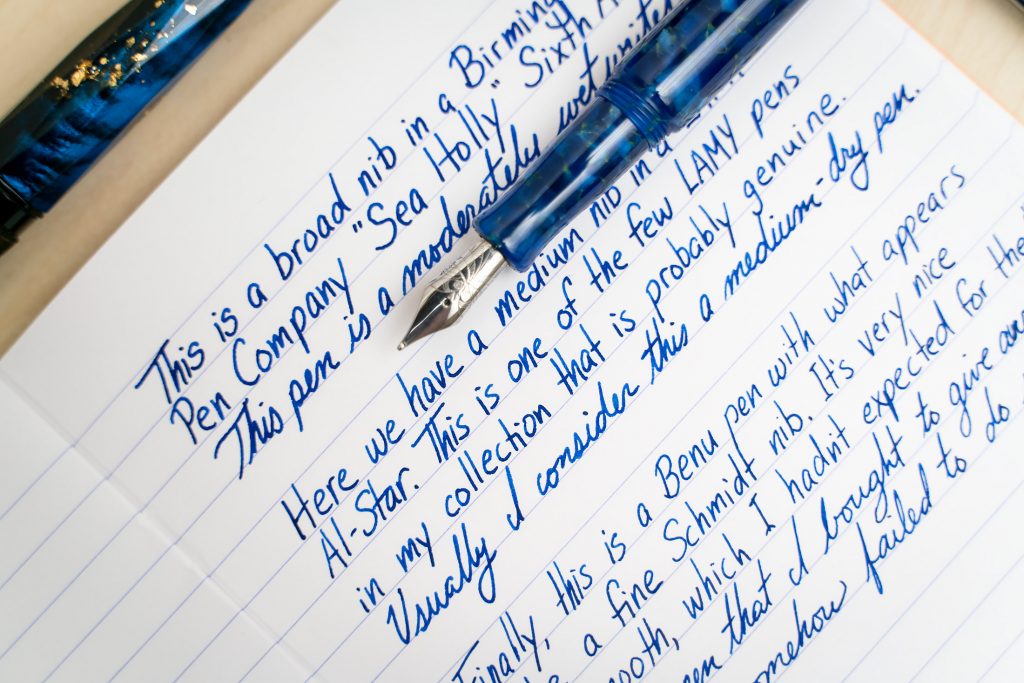 This is a broad nib in a Birming
Pen Company "Sea Holly" Sixth
This pen is a moderately wet writer
Here we have a medium nib in a
Al-Star. This is one of the few LAMY pens
in my collection that is probably genuine.
Usually I consider this a medium-dry pen.
Finally, this is a Benu pen with what appears
a fine Schmidt nib. It's very nice
smooth, which I hadn't expected for the
that I bought to give
somehow failed to do